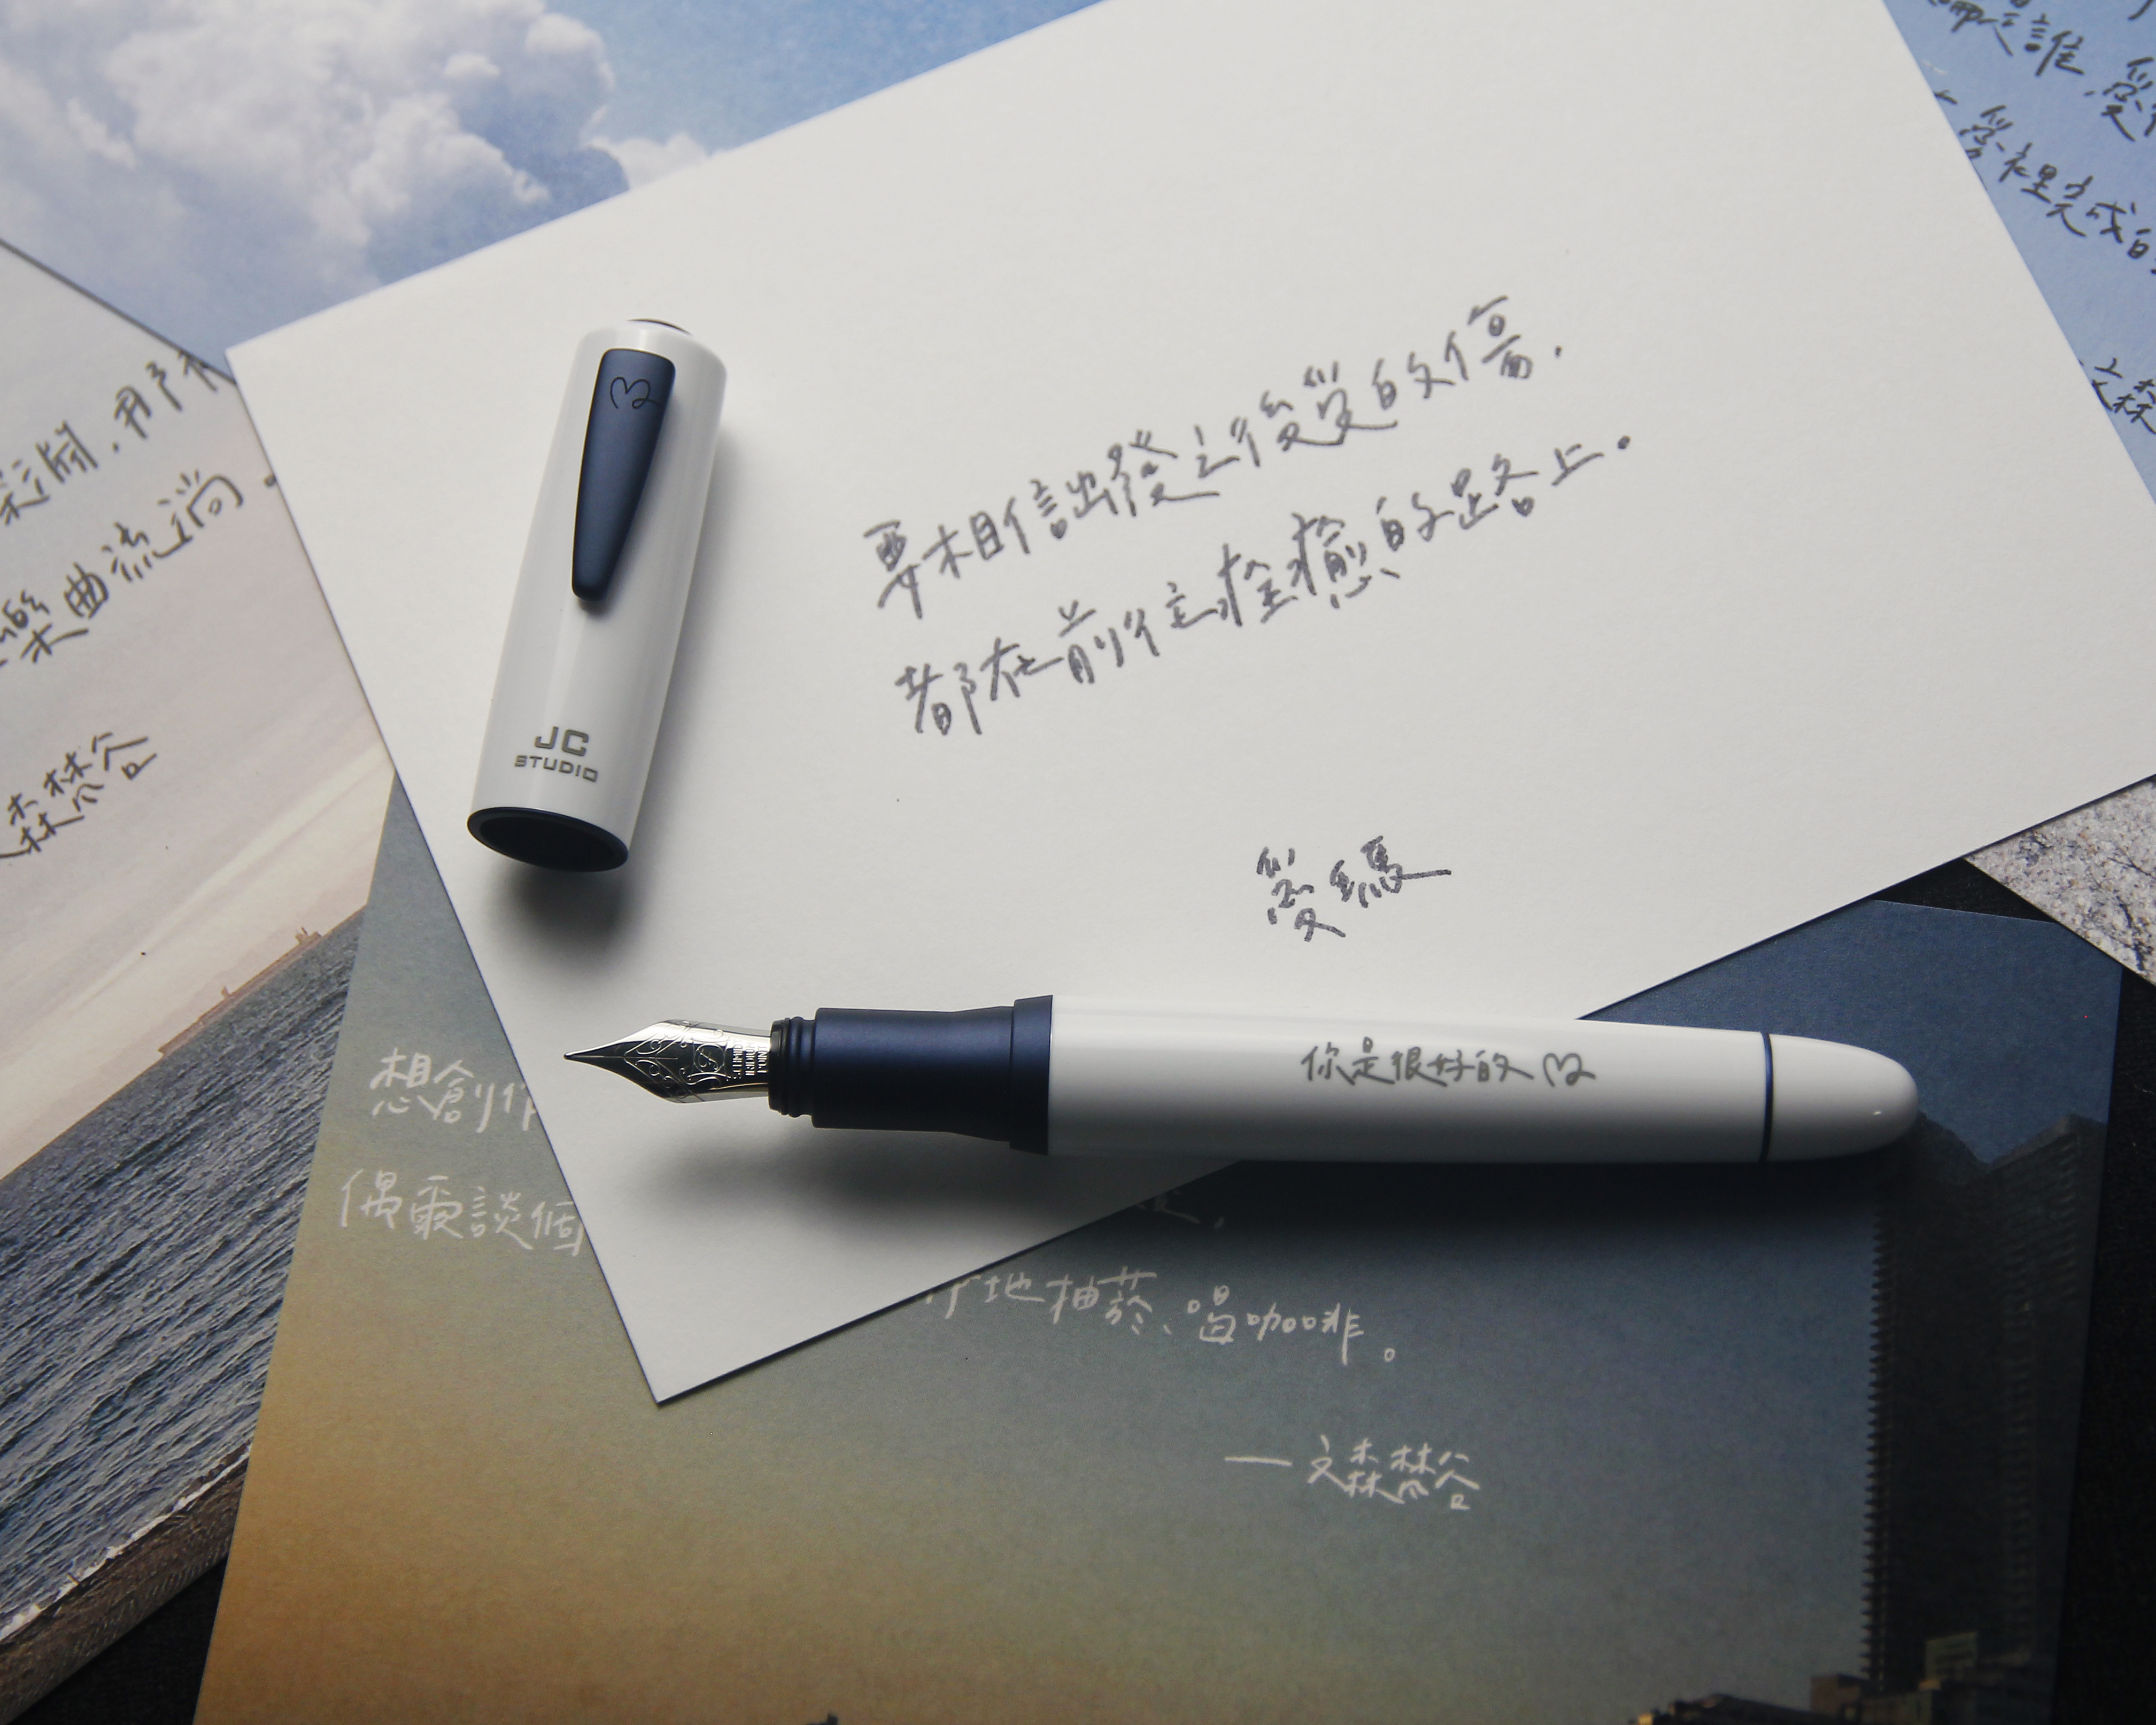 要相信出發之後受的傷，
都在前往痊癒的路上。
愛瑪
JC
STUDIO
你是很好的
想創作
偶爾談個
地抽菸、喝咖啡。
— 文森棼谷
樂曲流淌。
森棼谷
是誰，愛
愛裡完成
文森